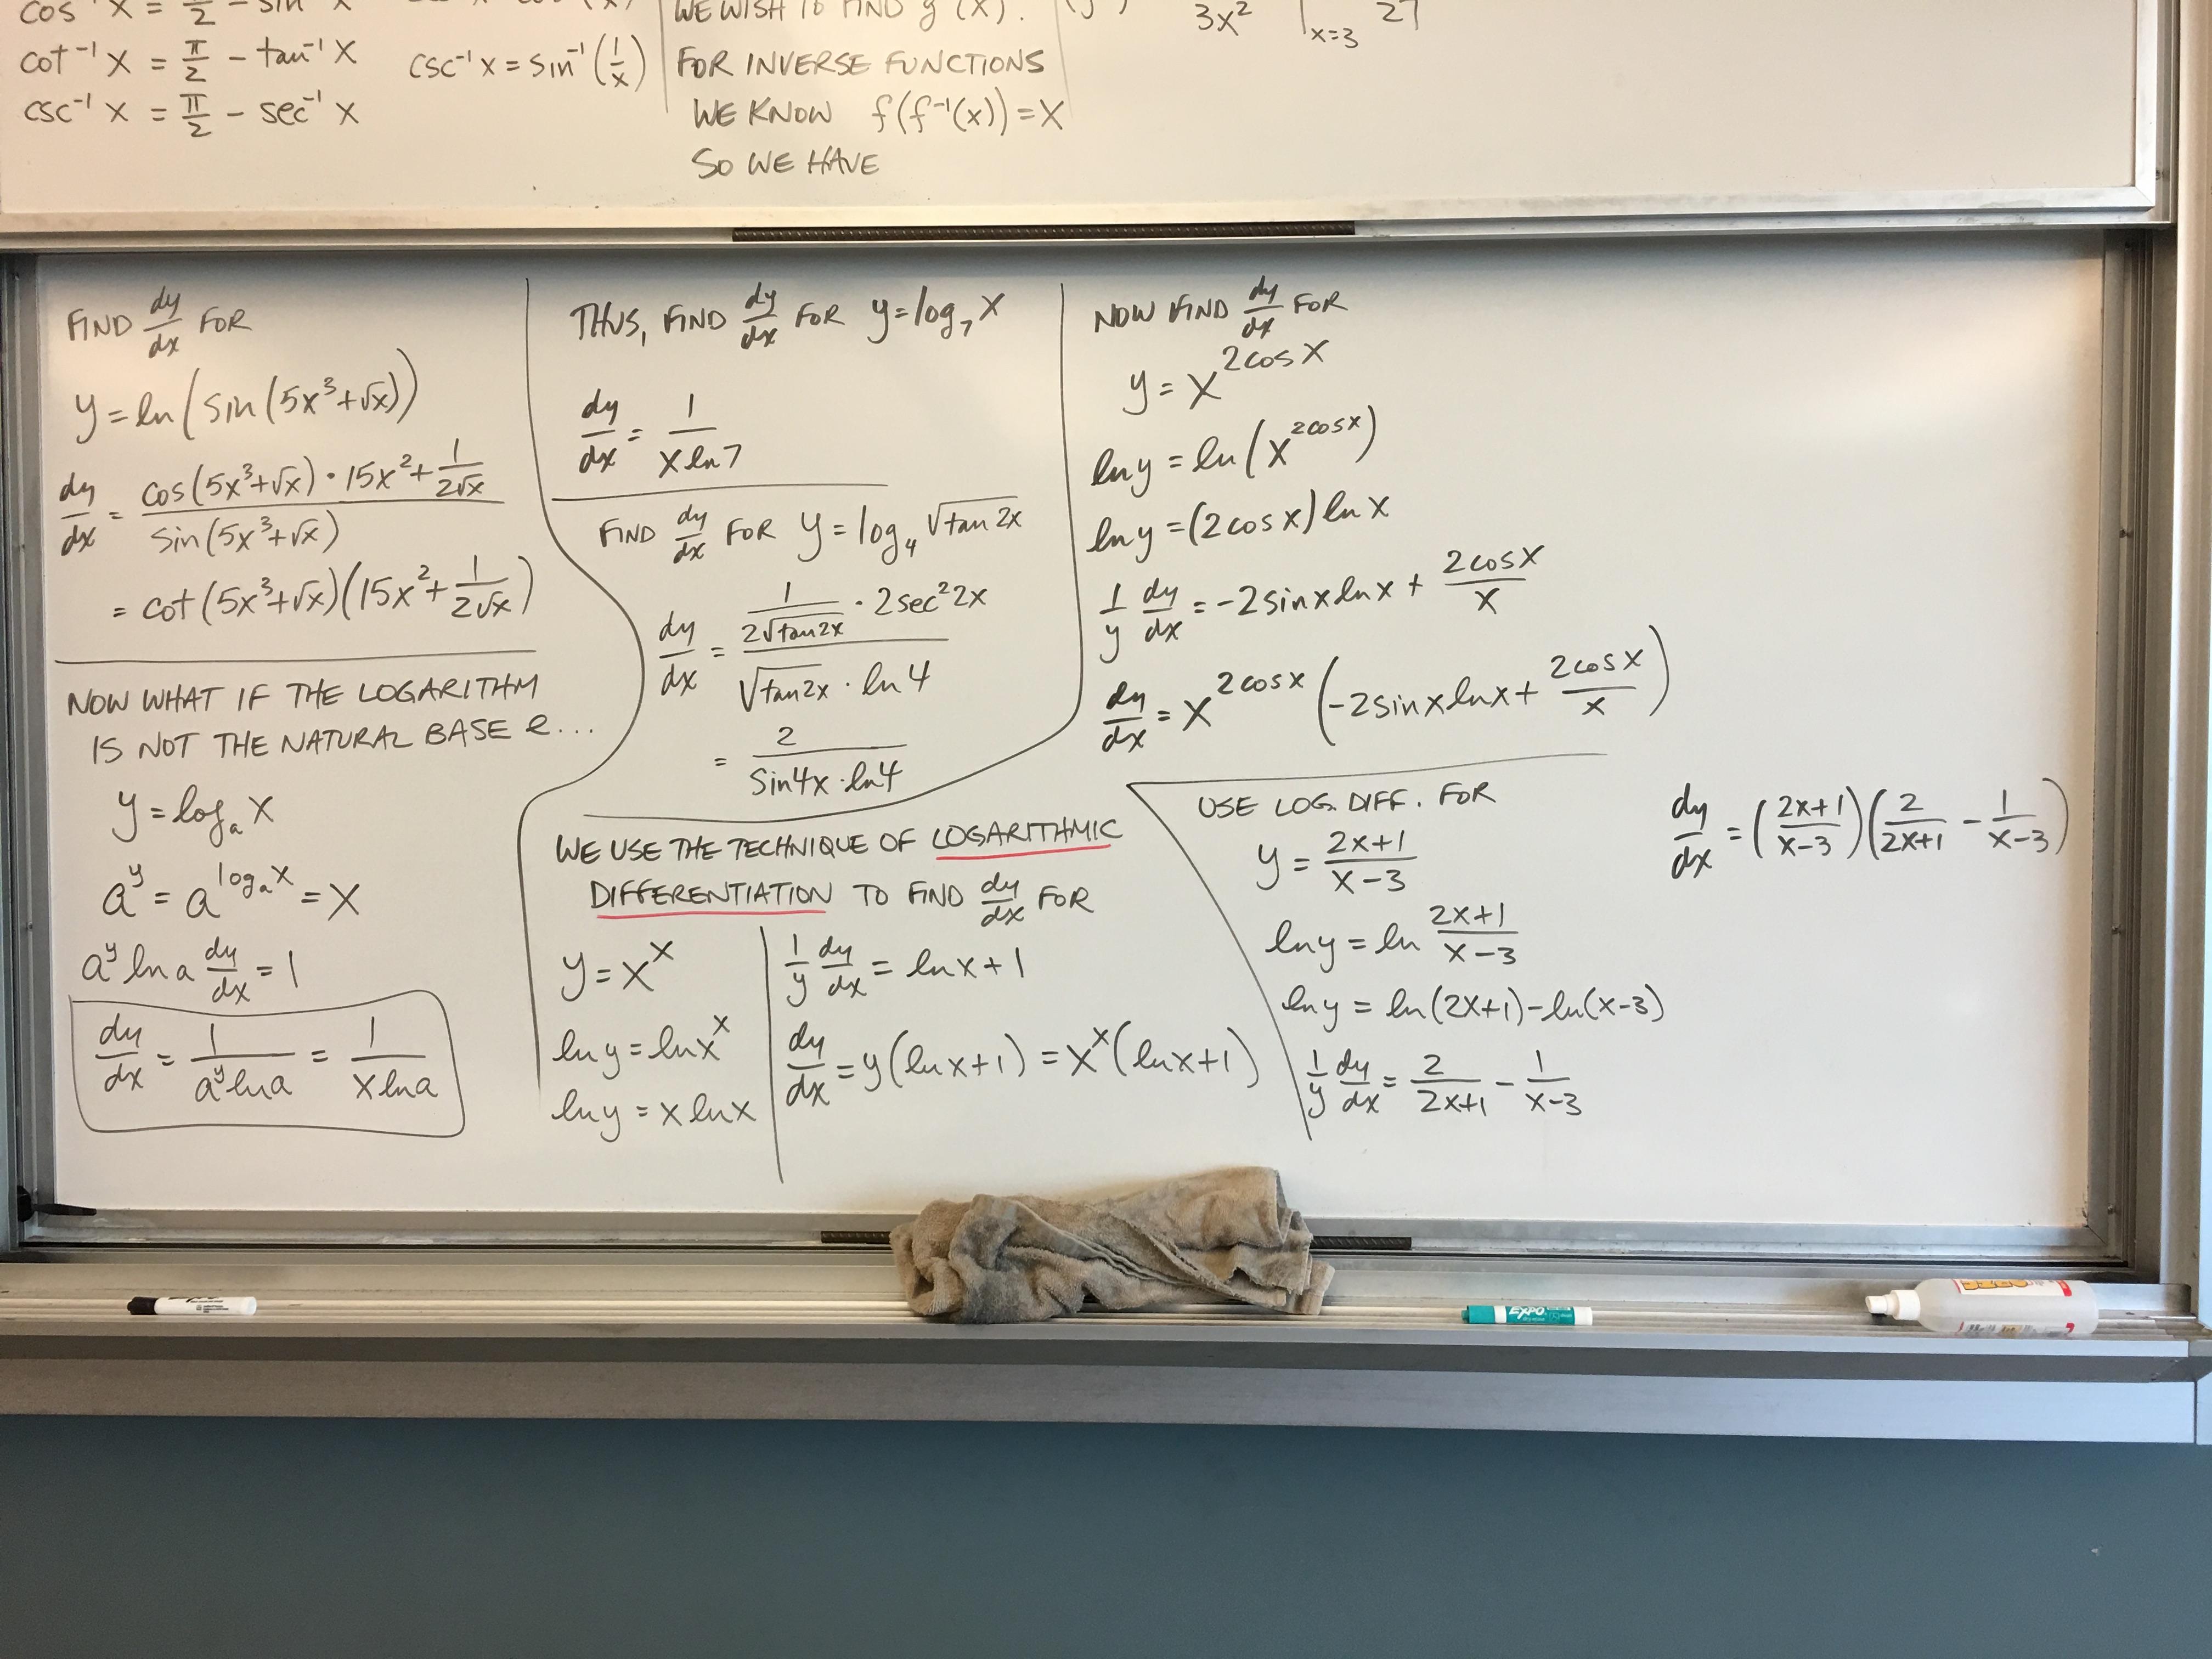 cot⁻¹ x = π/2 - tan⁻¹ x
csc⁻¹ x = π/2 - sec⁻¹ x
csc⁻¹ x = sin⁻¹(1/x)
WE WISH TO FIND g'(x).
FOR INVERSE FUNCTIONS
WE KNOW f(f⁻¹(x)) = X
SO WE HAVE
3x² |x=3 27
FIND dy/dx FOR
y = ln(sin(5x³+√x))
dy/dx = (cos(5x³+√x) · 15x² + 1/(2√x)) / sin(5x³+√x)
= cot(5x³+√x)(15x² + 1/(2√x))
NOW WHAT IF THE LOGARITHM
IS NOT THE NATURAL BASE e...
y = logₐ x
a^y = a^(logₐ x) = x
a^y ln a dy/dx = 1
dy/dx = 1/(a^y ln a) = 1/(x ln a)
THUS, FIND dy/dx FOR y = log₇ x
dy/dx = 1/(x ln 7)
FIND dy/dx FOR y = log₄ √(tan 2x)
dy/dx = (1/(2√(tan 2x)) · 2 sec² 2x) / (√(tan 2x) · ln 4)
= 2/(sin 4x · ln 4)
WE USE THE TECHNIQUE OF LOGARITHMIC
DIFFERENTIATION TO FIND dy/dx FOR
y = x^x
ln y = ln x^x
ln y = x ln x
1/y dy/dx = ln x + 1
dy/dx = y(ln x + 1) = x^x(ln x + 1)
NOW FIND dy/dx FOR
y = x^(2cos x)
ln y = ln(x^(2cos x))
ln y = (2cos x) ln x
1/y dy/dx = -2 sin x ln x + 2cos x/x
dy/dx = x^(2cos x) (-2 sin x ln x + 2cos x/x)
USE LOG. DIFF. FOR
y = (2x+1)/(x-3)
ln y = ln (2x+1)/(x-3)
ln y = ln(2x+1) - ln(x-3)
1/y dy/dx = 2/(2x+1) - 1/(x-3)
dy/dx = ((2x+1)/(x-3))(2/(2x+1) - 1/(x-3))
EXPO